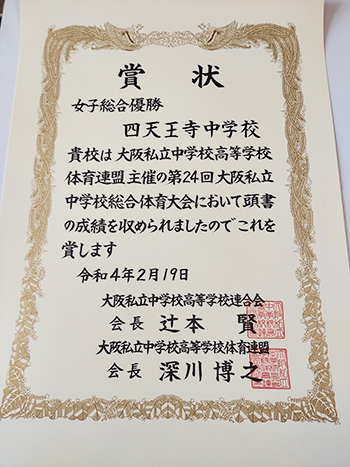 賞状
女子総合優勝
四天王寺中学校
貴校は大阪私立中学校高等学校
体育連盟主催の第24回大阪私立
中学校総合体育大会において頭書
の成績を収められましたのでこれを
賞します
令和4年2月19日
大阪私立中学校高等学校連合会
会長 辻本 賢
大阪私立中学校高等学校体育連盟
会長 深川博之